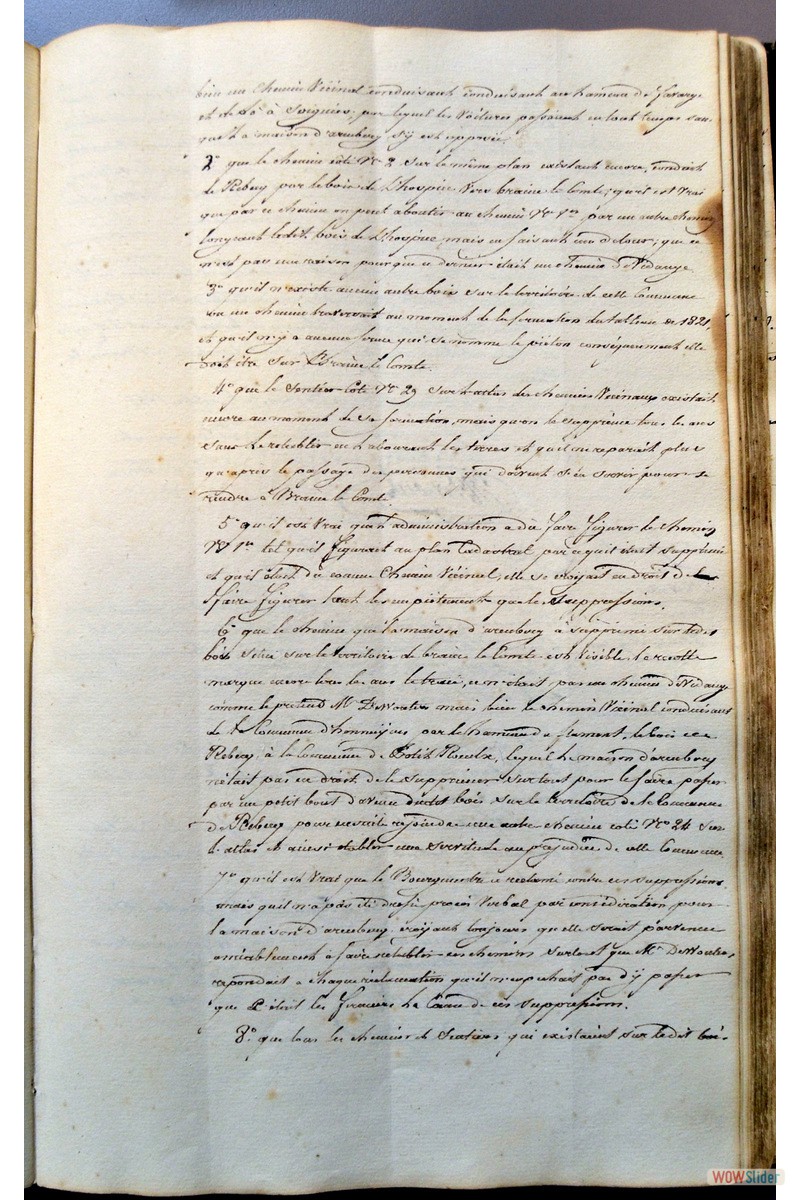 bien un chemin Vicinal conduisant conduisant au hameau de
et de là à Soignies, par lequel les voitures passaient en tout temps sans
que la maison d'aremberg s'y est opposée.
2° que le chemin coté N° 2 sur le même plan existant encore, conduit
de Rebecq par le bois de L'hospice Vers braine le Comte; qu'il est vrai
que par ce chemin on peut aboutir au chemin N° 1er par un autre chemin
longeant ledit bois de L'hospice, mais en faisant un détour; que ce
n'est pas une raison pour que ce dernier était un chemin de Vidange.
3° qu'il n'existe aucun autre bois sur le territoire de cette Commune
où un chemin traversait au moment de la formation du tableau de 1821,
et qu'il n'y a aucune qui se nomme le piéton conséquemment elle
doit être sur Braine le Comte.
4° que le Sentier Coté N° 29 sur l'atlas des chemins Vicinaux existait
encore au moment de sa formation, mais qu'on le supprime tous les ans
sans le rétablir en labourant les terres et qu'il ne reparait plus
qu'après le passage des personnes qui doivent s'en servir pour se
rendre à Braine le Comte
5° qu'il est Vrai que l'administration a du faire figurer le chemin
N° 1er tel qu'il figurait au plan Cadastral parcequ'il était supprimé
et qu'il était dû comme Chemin Vicinal, elle se croyait en droit de le
faire figurer tant les empiètement que les suppressions.
6° que le chemin que la maison d'aremberg à supprimé sur ledit
bois situé sur le territoire de braine le Comte est Visible, la récolte
marque encore tous les ans le tracé, ce n'était pas un chemin d'Vidange
comme le prétend Mr DeWouters mais bien le chemin Vicinal conduisant
de la Commune d'hennuyères par le hameau de, le bois de
Rebecq, à la Commune de Petit Roeulx, lequel la maison d'aremberg
n'était pas en droit de le supprimer surtout pour le faire passer
par un petit bout d'avenue dudit bois sur le territoire de la Commune
de Rebecq pour ensuite rejoindre une autre chemin coté N° 24 sur
l'atlas et ainsi établir une servitude au préjudice de cette Commune
7° qu'il est Vrai que le Bourgmestre a réclamé contre ces suppressions
mais qu'il n'a pas été dressé procès Verbal par considération pour
la maison d'aremberg croyant toujours qu'elle serait parvenue
amiablement à faire rétablir ces chemins surtout que Mr DeWouters
répondait a chaque réclamation qu'il n'empechait pas d'y passer
que C'était les fermiers la Cause de ces suppressions.
8° que tous les chemins et Sentiers qui existaient sur le dit boi-
WOWSlider